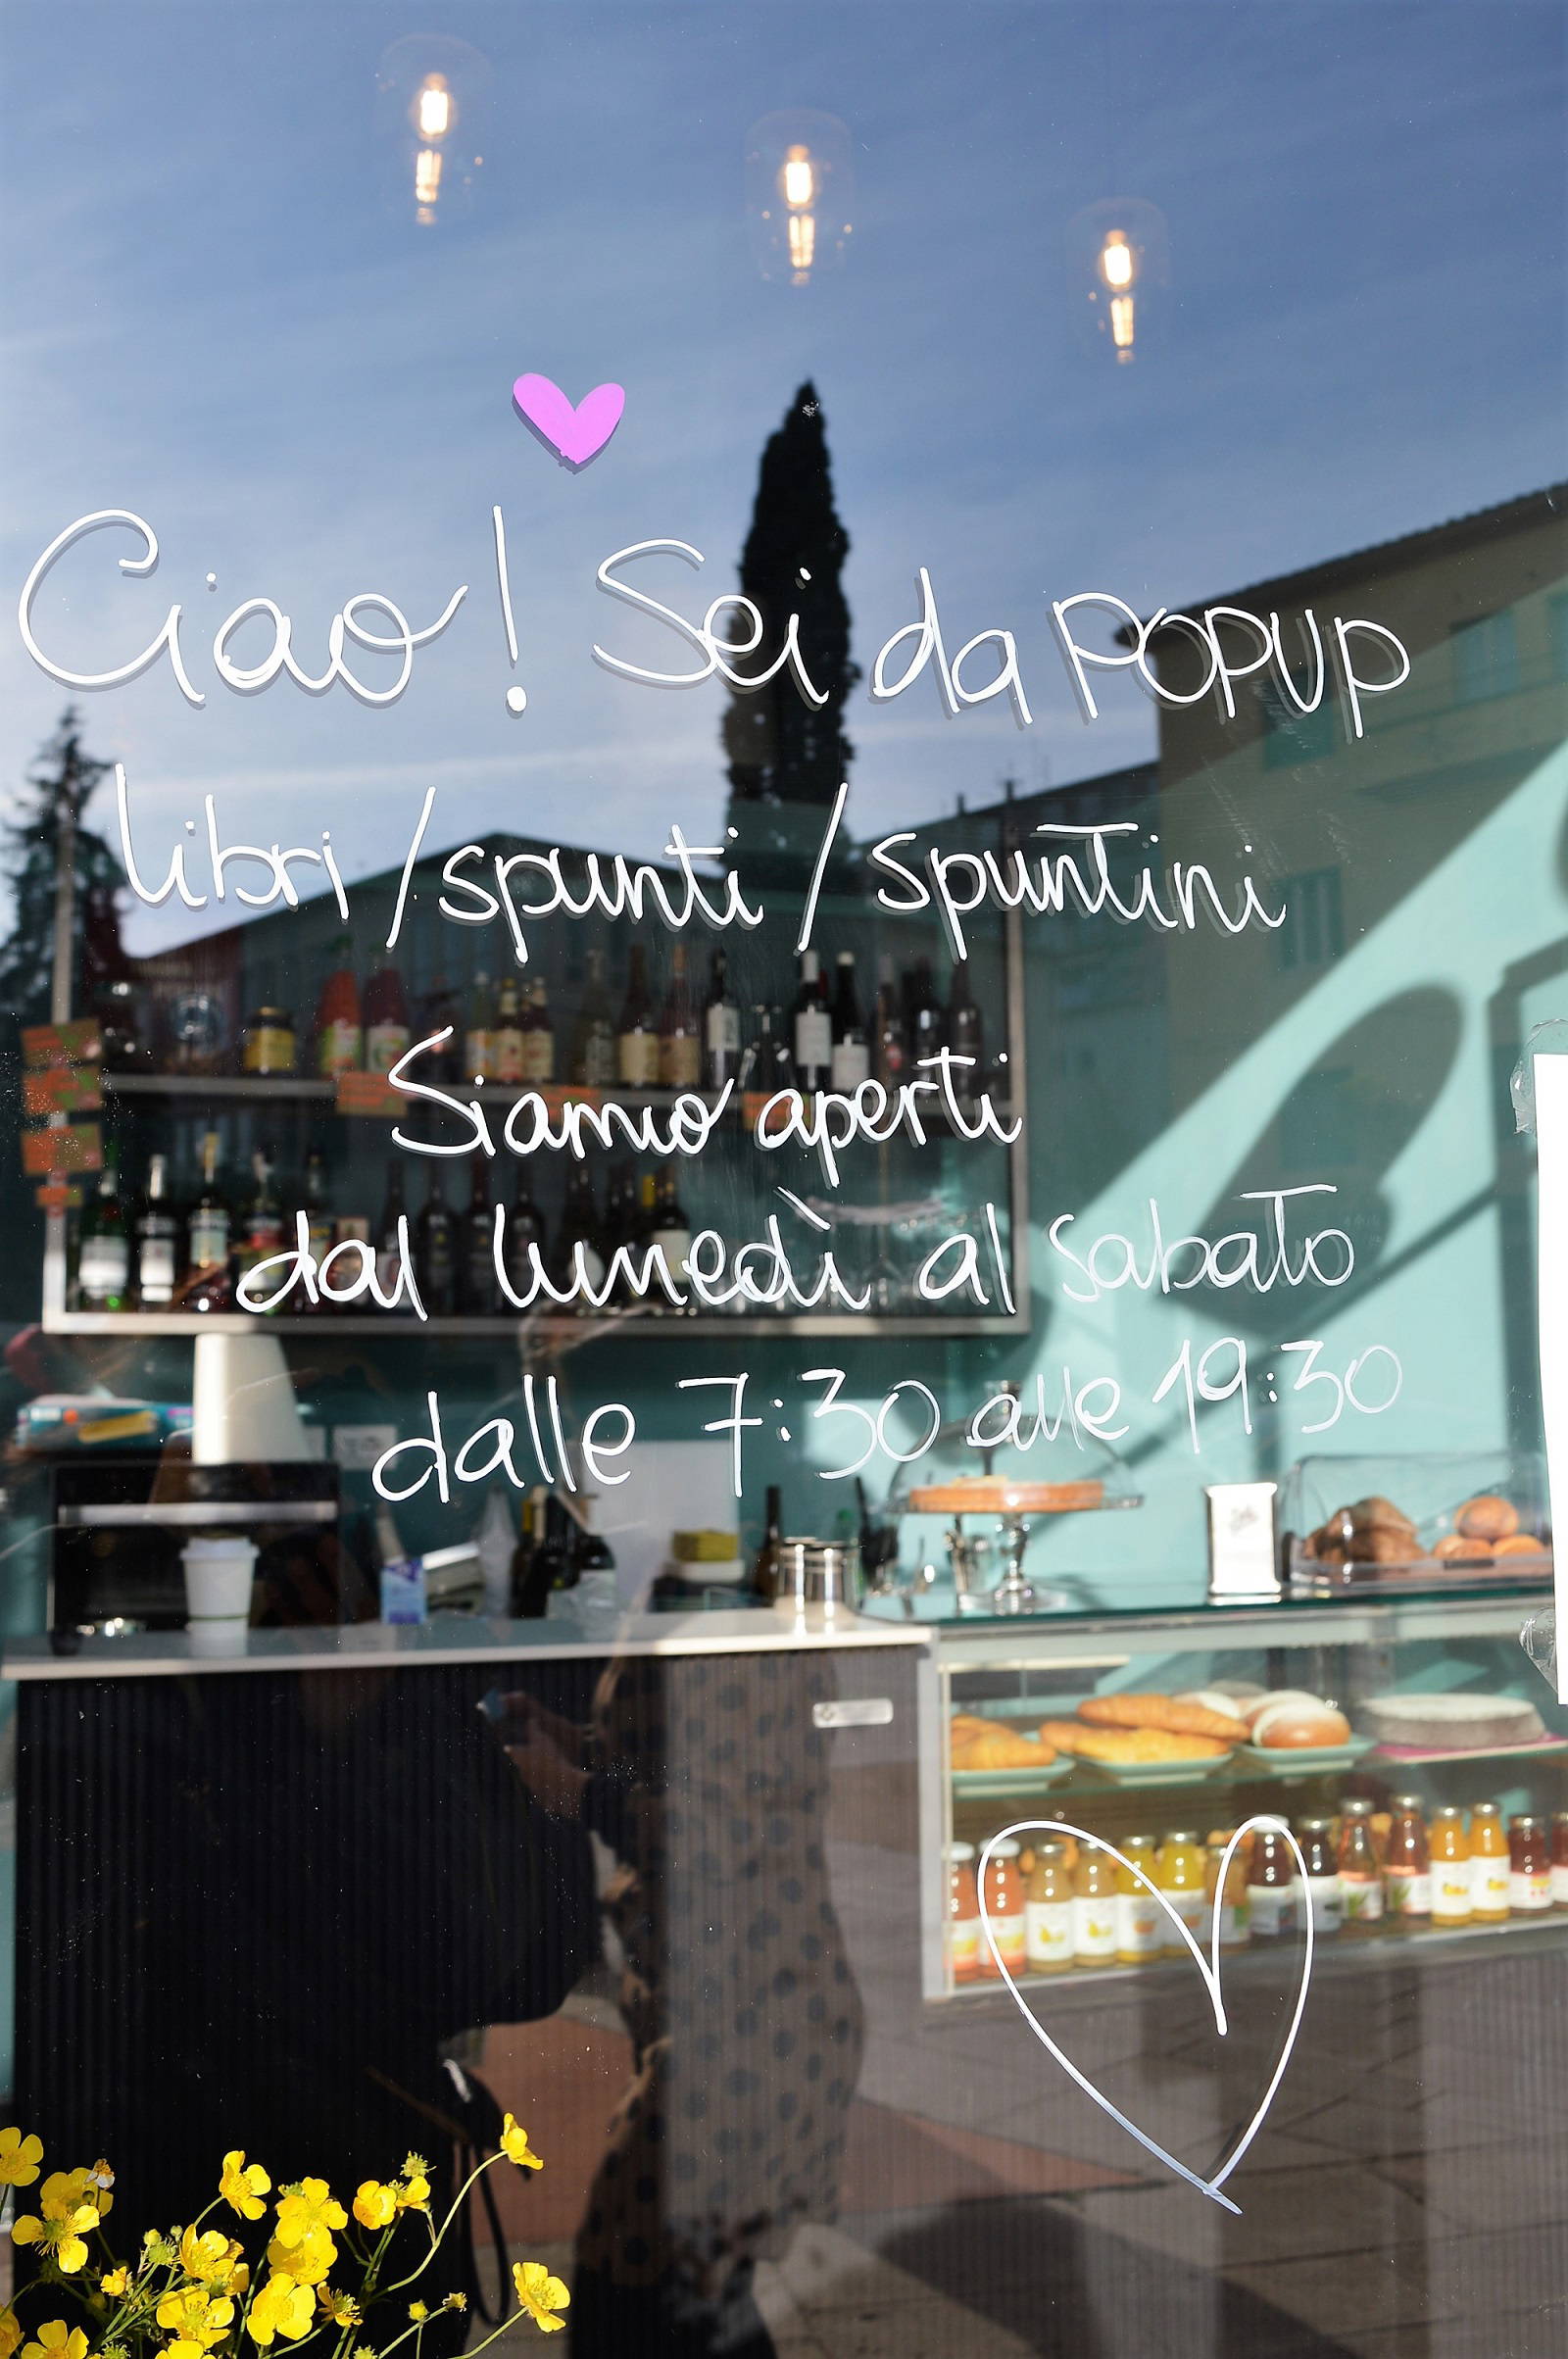 Ciao! Sei da POPUP
libri / spunti / spuntini
Siamo aperti
dal lunedì al sabato
dalle 7:30 alle 19:30